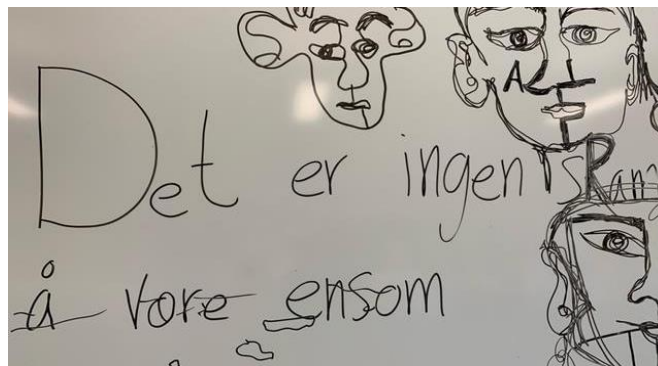 Det er ingen skam
å være ensom